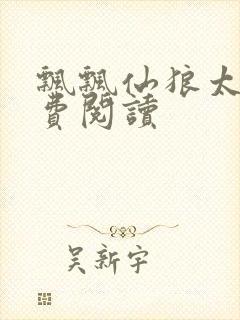 飄飄仙狼太
費閱讀
吴新宇